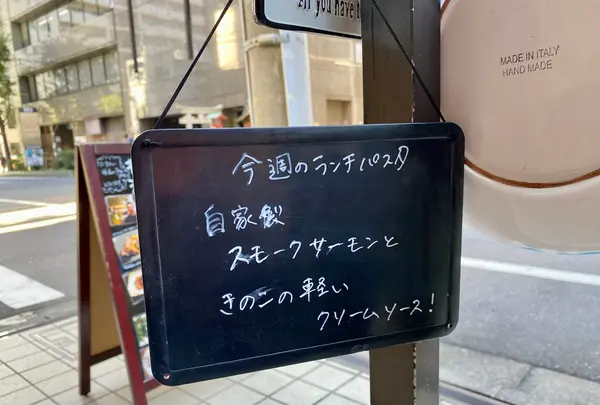 All you have t
MADE IN ITALY
HAND MADE
今週のランチパスタ
自家製
スモークサーモンと
きのこの軽い
クリームソース!